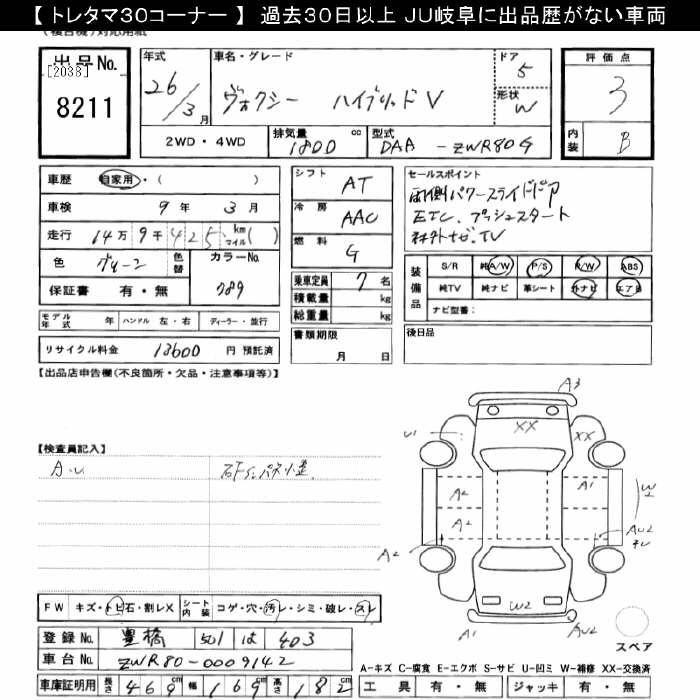 【 トレタマ30コーナー 】 過去30日以上 JU岐阜に出品歴がない車両
出品No.
[2038]
8211
年式
26/3月
車名・グレード
ヴォクシー ハイブリッドV
ドア
5
形状
W
評価点
3
内装
B
2WD・4WD
排気量
1800 cc
型式
DAA - ZWR80G
車歴 自家用・( )
車検 9年 3月
走行 14万9千425 km マイル( )
色 グリーン
色替
カラーNo.
789
保証書 有・無
シフト
AT
冷房
AAC
燃料
G
乗車定員 7名
積載量 kg
総重量 kg
書類期限
月 日
セールスポイント
両側パワースライドドア
ETC、プッシュスタート
社外ナビ、TV
装備品
S/R 純A/W P/S P/W ABS
純TV 純ナビ 革シート 外ナビ エアB
ナビ型番:
後日品
モデル年式 年 ハンドル 左・右 ディーラー・並行
リサイクル料金 13600 円 預託済
【出品店申告欄(不良箇所・欠品・注意事項等)】
【検査員記入】
A・U
A3
XX
XX
U1
A2
A1
W2
A2
A2
AU2
W2
A1
AU2
スペア
FW キズ・トビ石・割レX シート内装 コゲ・穴・汚レ・シミ・破レ・スレ
登録No. 豊橋 501 は 403
車台No. ZWR80-0009142
車庫証明用 長さ 469cm 幅 169cm 高さ 182cm
A−キズ C−腐食 E−エクボ S−サビ U−凹ミ W−補修 XX−交換済
工具 有・無 ジャッキ 有・無